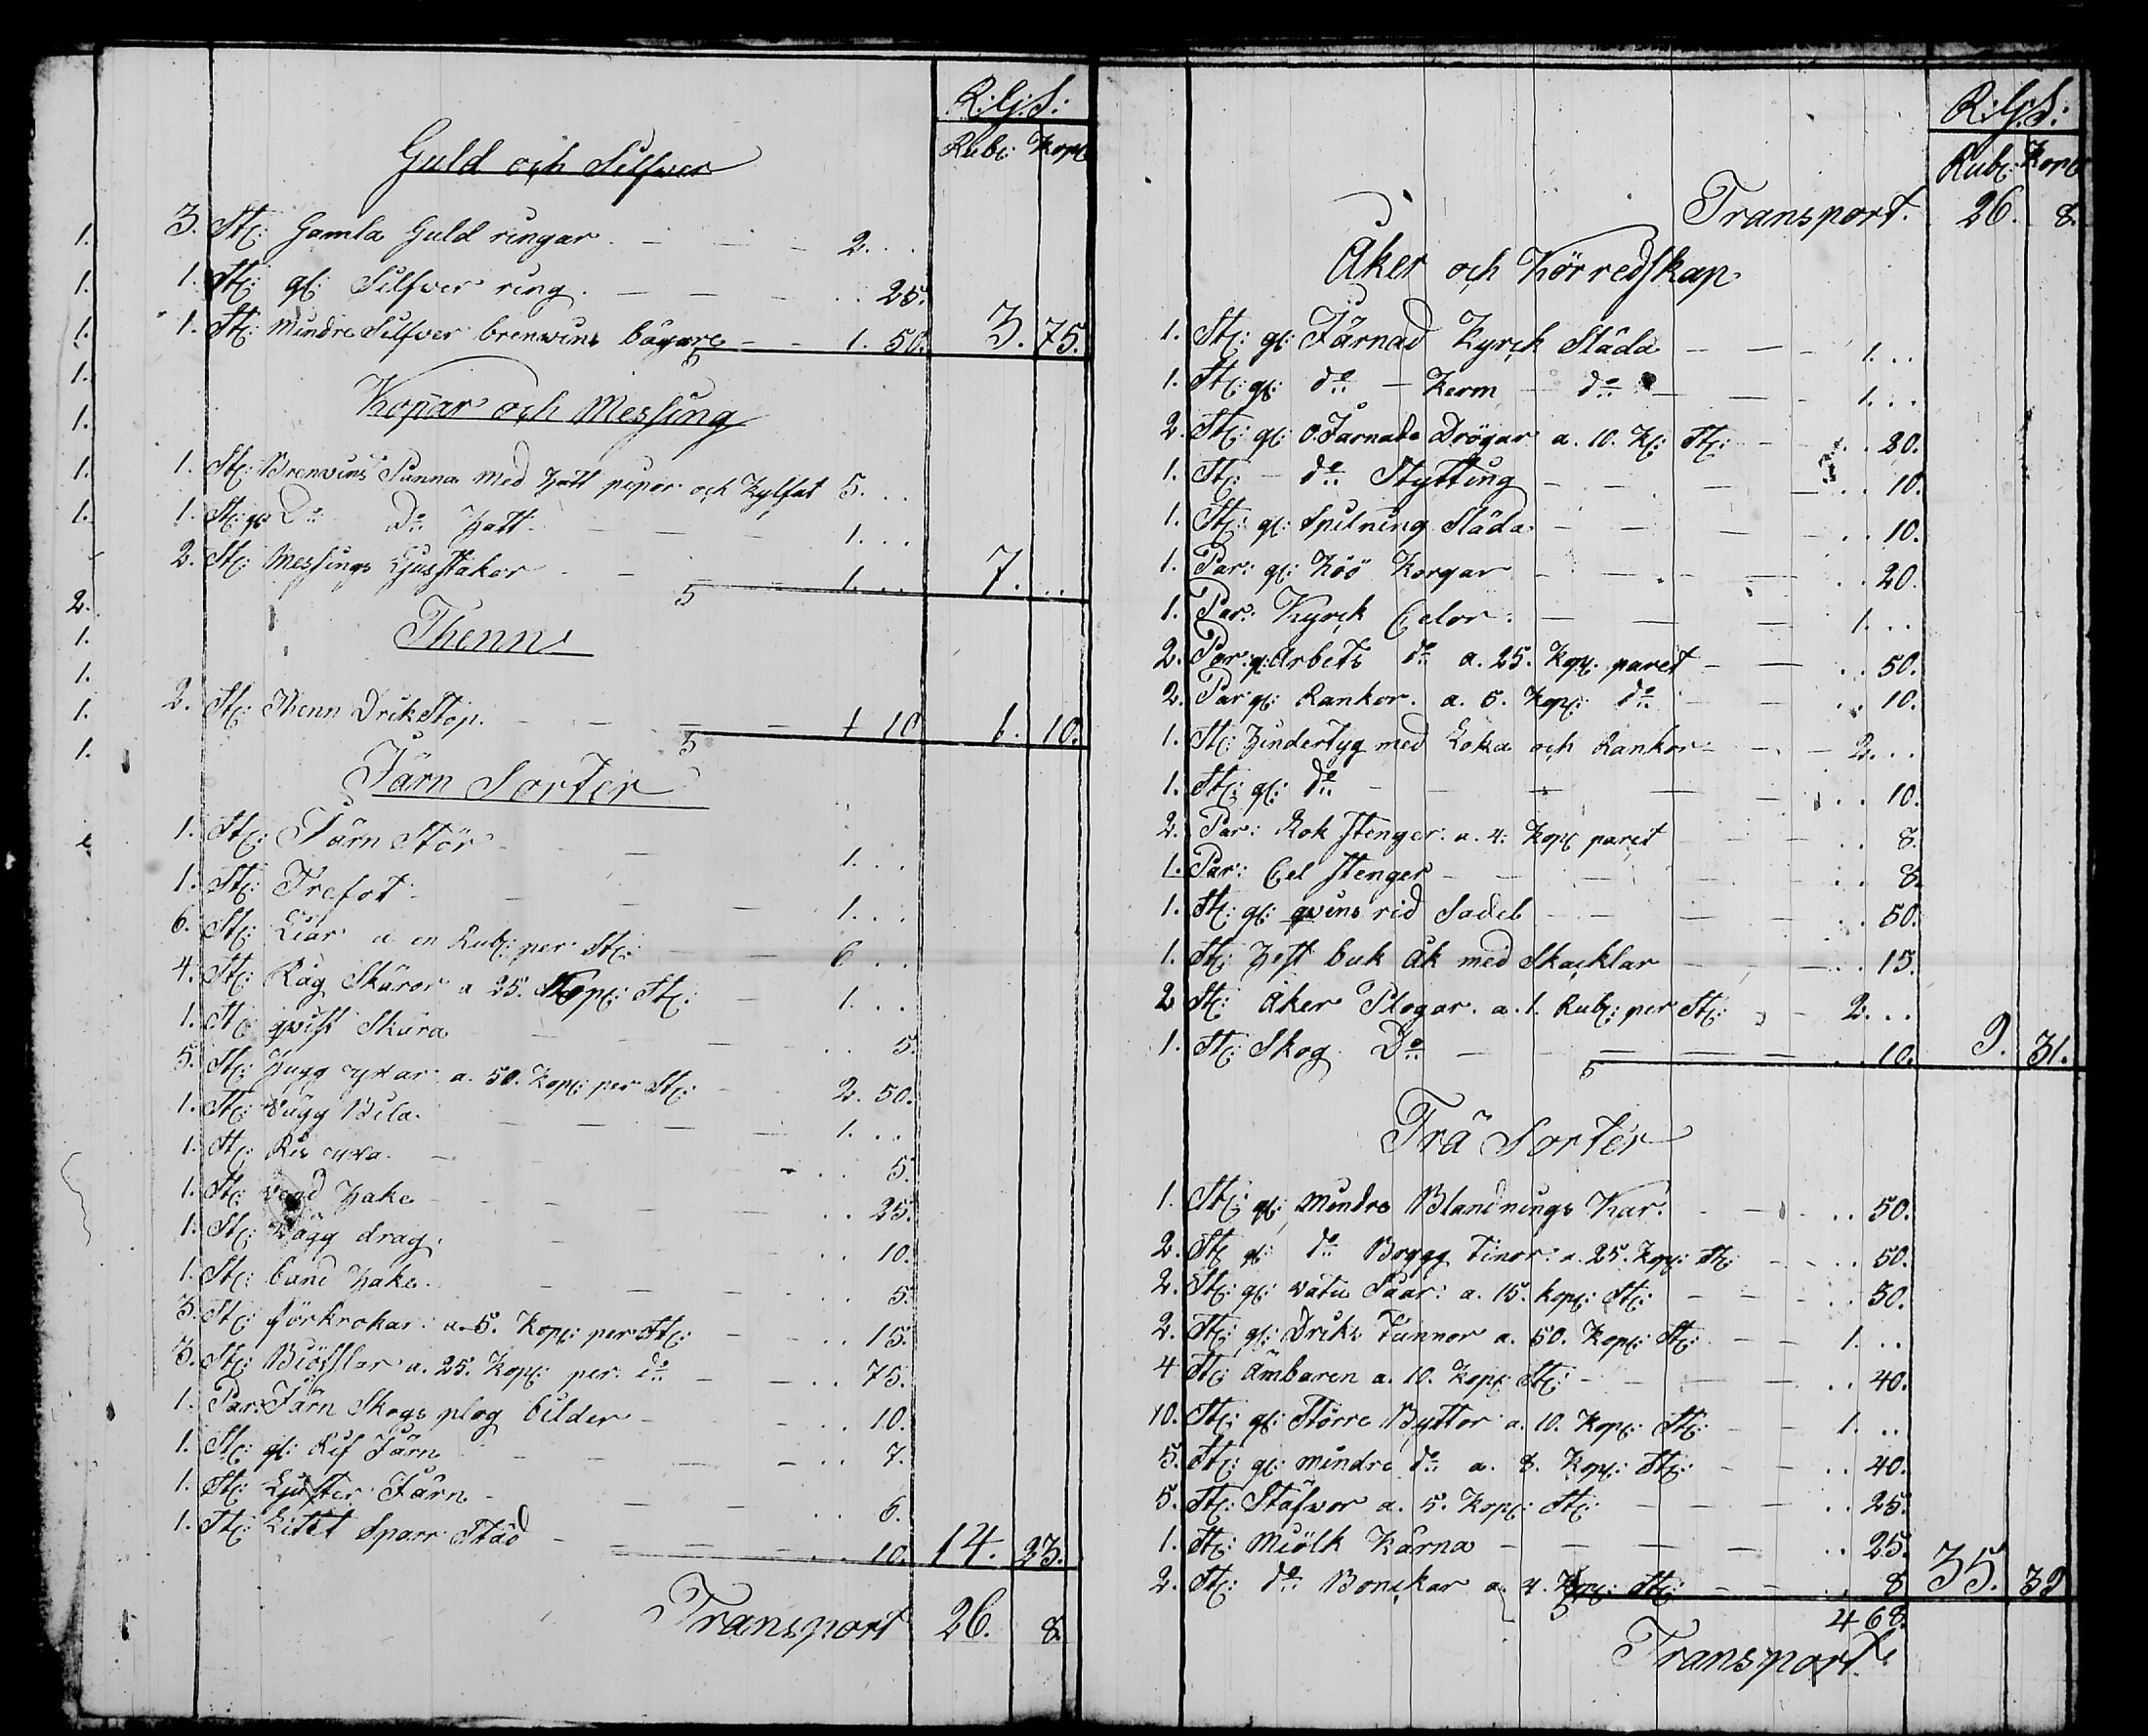 R:G:S:
Rub: Kop:
Guld och Silfver
3. St: Gamla Guld ringar 2. . .
1. St: gl: Silfver ring . . 25.
1. St: Mindre Silfver brenvins bägare 1. 50. 3. 75.
Kopar och Messing
1. St: Brenvins Panna med hatt pipor och Kylfat 5. . .
1. St: gl: Do Do hatt 1. . .
2. St: Messings Ljusstakar 1. . . 7. . .
Thenn
2. St: Thenn Drik Stop. 1 10 1. 10.
Järn Sorter
1. St: Järn Stör 1. . .
1. St: Trefot 1. . .
6. St: Liar a en Rub: per St: 6 . .
4. St: Råg Skäror a 25. Kop: St: 1. . .
1. St: qvist Skära . . 5.
5. St: Hugg yxar a. 50. Kop: per St: 2. 50.
1. St: Vägg Bila 1. . .
1. St: Ris yxa . . 5.
1. St: vend hake . . 25.
1. St: Vägg drag . . 10.
1. St: band hake . . 5.
3. St: förkrokar a. 5. Kop: per St: . . 15.
3. St: Biösslar a. 25. Kop: per do . . 75.
1. Par: Järn Skogs plog bilder . . 10.
1. St: gl: Rif Järn . . 7.
1. St: Ljuster Järn . . 6.
1. St: Litet Sparr Städ . . 10. 14. 23.
Transport 26. 8.
R:G:S:
Rub: Kop:
Transport. 26. 8.
Åker och Körredskap
1. St: gl: Järnad Kyrck Släda 1. . .
1. St: gl: do Kerm do 1. . .
2. St: gl: o Järnade Drögar a. 10. K: St: . . 20.
1. St: do Stytting . . 10.
1. St: gl: Spilning Släda . . 10.
1. Par: gl: Höö Korgar . . 20.
1. Par: Kyrck Celor 1. . .
2. Par: gl: Arbets do a. 25. Kop: paret . . 50.
2. Par gl: Rankor. a. 5. Kop: do . . 10.
1. St: Hindertyg med Loka och Rankor 2. . .
1. St: gl: do . . 10.
2. Par: Rok Stenger a. 4. Kop: paret . . 8.
1. Par: Cel Stenger . . 8.
1. St: gl: qvins rid Sadel . . 50.
1. St: Hest buk åk med Skacklar . . 15.
2 St: Åker Plogar. a. 1. Rub: per St: 2. . .
1. St: Skog Do . . 10. 9. 31.
Trä Sorter
1. St: gl: mindre Blandnings Kar. . . 50.
2. St: gl: do Brygg Tinor: a. 25. Kop: St: . . 50.
2. St: gl: vatu Såar: a. 15. kop: St: . . 30.
2. St: gl: Driks Tunnor a. 50. Kop: St: 1. . .
4 St: Ämbaren a. 10. Kop: St: . . 40.
10. St: gl: Större Byttor a. 10. Kop: St: 1. . .
5. St: gl: mindre do a. 8. Kop: St: . . 40.
5. St: Stäfvor a. 5. Kop: St: . . 25.
1. St: Miölk Kärna . . 25.
2. St: do Bonckar a. 4. Kop: St: . . 8 35. 39
4 68.
Transport